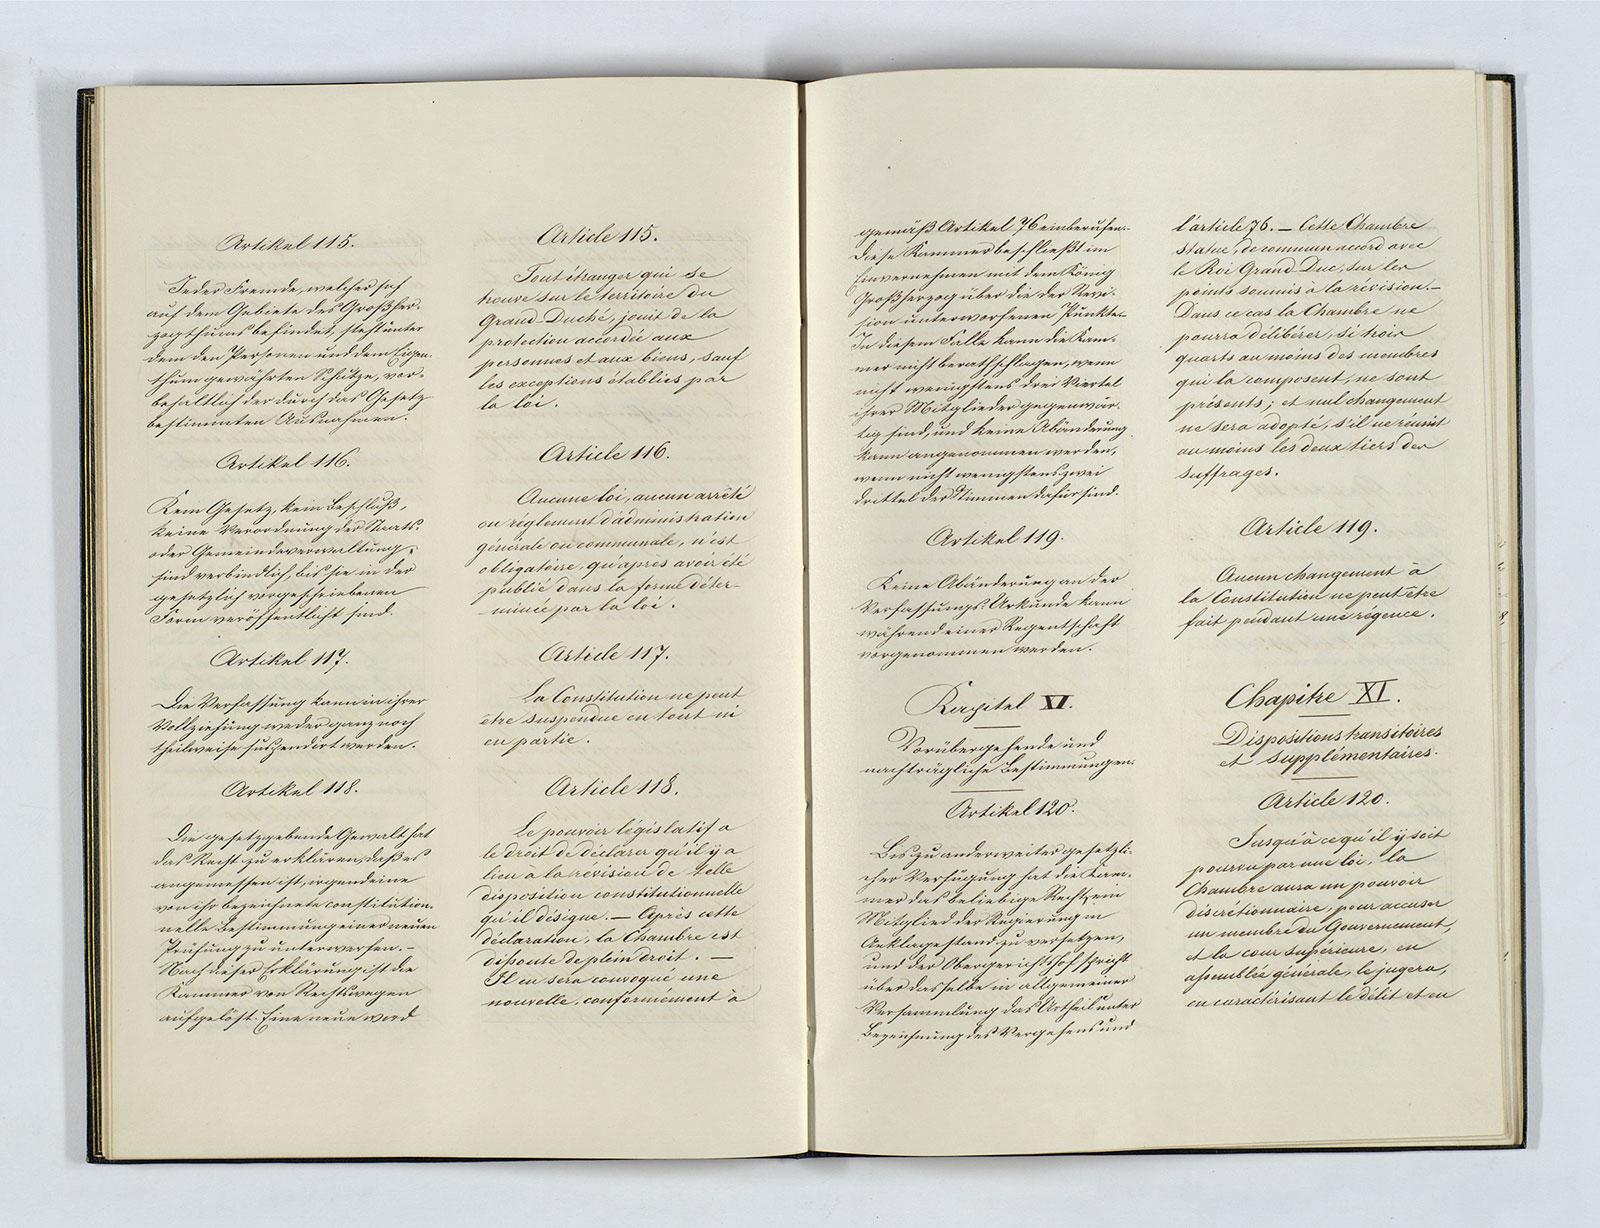 Artikel 115.
Jeder Fremde, welcher sich
auf dem Gebiete des Großher-
zogthums befindet, steht unter
dem den Personen und dem Eigen-
thum gewährten Schutze, vor-
behaltlich der durch das Gesetz
bestimmten Ausnahmen.
Artikel 116.
Kein Gesetz, kein Beschluß,
keine Verordnung der Staats-
oder Gemeindeverwaltung,
sind verbindlich, bis sie in der
gesetzlich vorgeschriebenen
Form veröffentlicht sind.
Artikel 117.
Die Verfassung kann in ihrer
Vollziehung weder ganz noch
theilweise suspendirt werden.
Artikel 118.
Die gesetzgebende Gewalt hat
das Recht zu erklären, daß es
angemessen ist, irgend eine
von ihr bezeichnete constitution-
nelle Bestimmung einer neuen
Prüfung zu unterwerfen. –
Nach dieser Erklärung ist die
Kammer von Rechtswegen
aufgelöst. Eine neue wird
Article 115.
Tout étranger qui se
trouve sur le territoire du
Grand-Duché, jouit de la
protection accordée aux
personnes et aux biens, sauf
les exceptions établies par
la loi.
Article 116.
Aucune loi, aucun arrêté
ou réglement d'administration
générale ou communale, n'est
obligatoire, qu'après avoir été
publié dans la forme déter-
minée par la loi.
Article 117.
La Constitution ne peut
être suspendue en tout ni
en partie.
Article 118.
Le pouvoir législatif a
le droit de déclarer qu'il y a
lieu à la révision de telle
disposition constitutionnelle
qu'il désigne. — Après cette
déclaration, la Chambre est
dissoute de plein droit. —
Il en sera convoqué une
nouvelle, conformément à
gemäß Artikel 76 einberufen.
Diese Kammer beschließt im
Einvernehmen mit dem König
Großherzog über die der Revi-
sion unterworfenen Punkte.
In diesem Falle kann die Kam-
mer nicht berathschlagen, wenn
nicht wenigstens drei Viertel
ihrer Mitglieder gegenwär-
tig sind, und keine Abänderung
kann angenommen werden,
wenn nicht wenigstens zwei
Drittel der Stimmen dafür sind.
Artikel 119.
Keine Abänderung an der
Verfassungs Urkunde kann
während einer Regentschaft
vorgenommen werden.
Kapitel XI.
Vorübergehende und
nachträgliche Bestimmungen.
Artikel 120.
Bis zu anderweiter gesetzli-
cher Verfügung hat die Kam-
mer das beliebige Recht, ein
Mitglied der Regierung in
Anklagestand zu versetzen,
und der Obergerichtshof spricht
über dasselbe in allgemeiner
Versammlung das Urtheil unter
Bezeichnung des Vergehens und
l'article 76. — Cette Chambre
statue, de commun accord avec
le Roi Grand-Duc, sur les
points soumis à la révision. —
Dans ce cas la Chambre ne
pourra délibérer, si trois
quarts au moins des membres
qui la composent, ne sont
présents; et nul changement
ne sera adopté, s'il ne réunit
au moins les deux tiers des
suffrages.
Article 119.
Aucun changement à
la Constitution ne peut être
fait pendant une régence.
Chapitre XI.
Dispositions transitoires
et supplémentaires.
Article 120.
Jusqu'à ce qu'il y soit
pourvu par une loi, la
Chambre aura un pouvoir
discrétionnaire, pour accuser
un membre du Gouvernement,
et la cour supérieure, en
assemblée générale, le jugera,
en caractérisant le délit et en